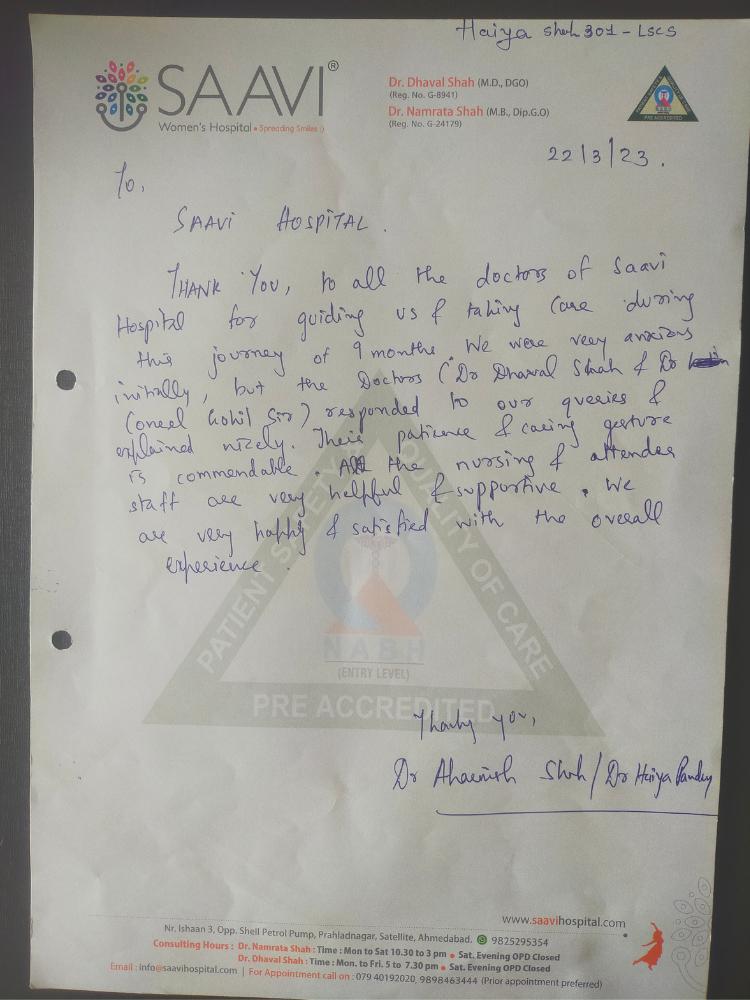 Haiya Shah 301 - LSCS
SAAVI®
Women's Hospital • Spreading Smiles :)
Dr. Dhaval Shah (M.D., DGO)
(Reg. No. G-8941)
Dr. Namrata Shah (M.B., Dip.G.O)
(Reg. No. G-24179)
PRE ACCREDITED
22/3/23.
To,
SAAVI HOSPITAL.
THANK YOU, to all the doctors of Saavi
Hospital for guiding us & taking care during
this journey of 9 months. We were very anxious
initially, but the Doctors (Dr Dhaval Shah & Dr
Coneel Gohil Sir) responded to our queries &
explained nicely. Their patience & caring gesture
is commendable. All the nursing & attendee
staff are very helpful & supportive. We
are very happy & satisfied with the overall
experience.
PATIENT SAFETY & QUALITY OF CARE
NABH
(ENTRY LEVEL)
PRE ACCREDITED
Thank you,
Dr Shah / Dr Haiya Pandey
www.saavihospital.com
Nr. Ishaan 3, Opp. Shell Petrol Pump, Prahladnagar, Satellite, Ahmedabad. 9825295354
Consulting Hours : Dr. Namrata Shah : Time : Mon to Sat 10.30 to 3 pm • Sat. Evening OPD Closed
Dr. Dhaval Shah : Time : Mon. to Fri. 5 to 7.30 pm • Sat. Evening OPD Closed
Email : info@saavihospital.com | For Appointment call on : 079 40192020, 9898463444 (Prior appointment preferred)